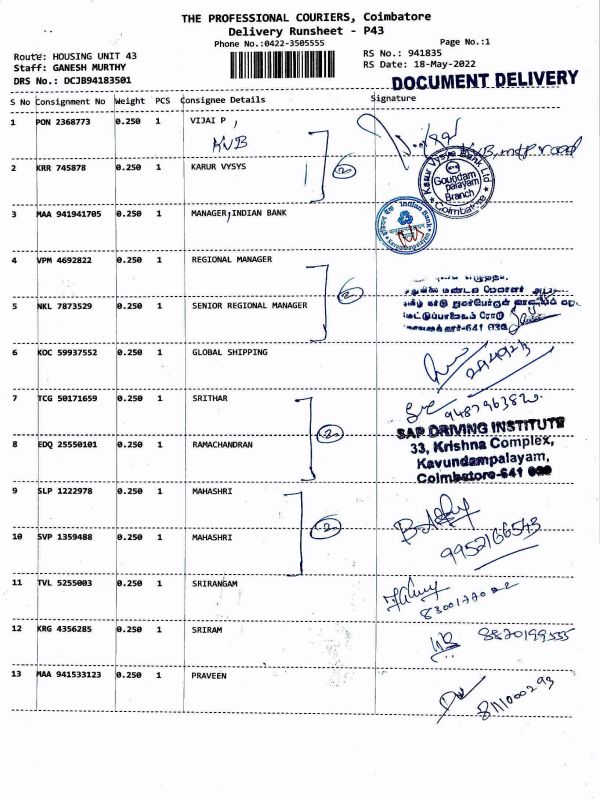 THE PROFESSIONAL COURIERS, Coimbatore
Delivery Runsheet - P43
Phone No.:0422-3505555
Page No.:1
Route: HOUSING UNIT 43
Staff: GANESH MURTHY
DRS No.: DCJB94183501
RS No.: 941835
RS Date: 18-May-2022
DOCUMENT DELIVERY
S No Consignment No Weight PCS Consignee Details Signature
1 PON 2368773 0.250 1 VIJAI P ,
KVB
KVB, mtp road
2 KRR 745878 0.250 1 KARUR VYSYS
2
Karur Vysya Bank Ltd
Goundam
palayam
Branch
Coimbatore
3 MAA 941941705 0.250 1 MANAGER, INDIAN BANK
Indian Bank
Kavundampalayam
4 VPM 4692822 0.250 1 REGIONAL MANAGER
2
5 NKL 7873529 0.250 1 SENIOR REGIONAL MANAGER
மேட்டுப்பாளையம் ரோடு
641 030
6 KOC 59937552 0.250 1 GLOBAL SHIPPING
7 TCG 50171659 0.250 1 SRITHAR
2
8 EDQ 25550101 0.250 1 RAMACHANDRAN
SAP DRIVING INSTITUTE
33, Krishna Complex,
Kavundampalayam,
Coimbatore-641 030
9 SLP 1222978 0.250 1 MAHASHRI
2
10 SVP 1359488 0.250 1 MAHASHRI
9952166543
11 TVL 5255003 0.250 1 SRIRANGAM
12 KRG 4356285 0.250 1 SRIRAM
8820199535
13 MAA 941533123 0.250 1 PRAVEEN